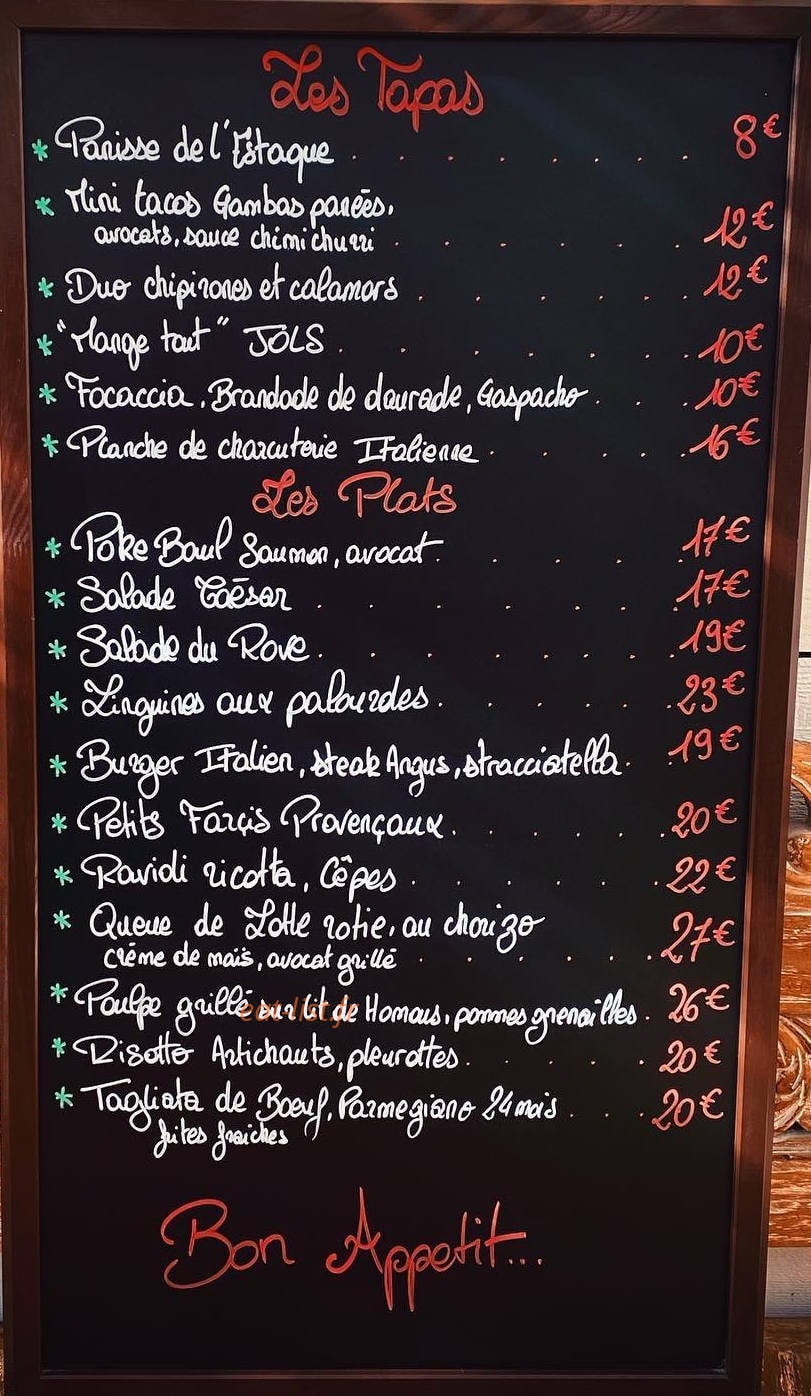 Les Tapas
* Panisse de l'Estaque . . . . . . . . 8€
* Mini tacos Gambas panées,
avocats, sauce chimichurri . . . . . . 12€
* Duo chipirones et calamars . . . . . . 12€
* "Mange tout" JOLS . . . . . . . 10€
* Focaccia, Brandade de daurade, Gaspacho . . . 10€
* Planche de charcuterie Italienne . . . . . 16€
Les Plats
* Poke Bowl Saumon, avocat . . . . . 17€
* Salade Caésar . . . . . . 17€
* Salade du Rove . . . . . . . 19€
* Linguines aux palourdes . . . . . . 23€
* Burger Italien, steak Angus, stracciatella . . 19€
* Petits Farçis Provençaux . . . . . . 20€
* Ravioli ricotta, Cêpes . . . . . . 22€
* Queue de Lotte rotie, au chorizo
crème de maïs, avocat grillé . . . . . . 27€
* Poulpe grillé sur lit de Homous, pommes grenailles . 26€
eat-list.fr
* Risotto Artichauts, pleurottes . . . . . 20€
* Tagliata de Boeuf, Parmegiano 24 mois . . . 20€
frites fraiches
Bon Appetit...